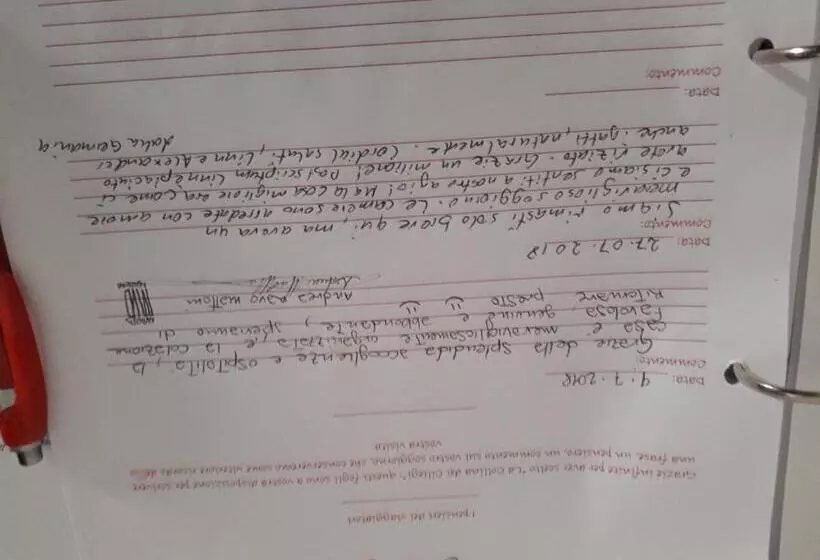 I pensieri dei viaggiatori
Grazie infinite per aver scelto "La Collina dei Ciliegi", questi fogli sono a vostra disposizione per scrivere
una frase, un pensiero, un commento sul vostro soggiorno, che conserveremo come ulteriore ricordo della
vostra visita
Data: 4.7.2018
Commento:
Grazie della splendida accoglienze e ospitalità, la
casa è meravigliosamente organizzata e la colazione
favolosa, genuina e abbondante, speriamo di
ritornare presto
Andrea
Data: 27.07.2018
Commento:
Siamo rimasti solo breve qui, ma avava un
meraviglioso soggiorno. Le camere sono arredate con amore
e ci siamo sentiti a nostro agio! Ma la cosa migliore era come ci
avete viziato. Grazie un milione! Postscriptum
anche i gatti, naturalmente. Cordial saluti, Linn e Alexander
Germania
Data:
Commento: